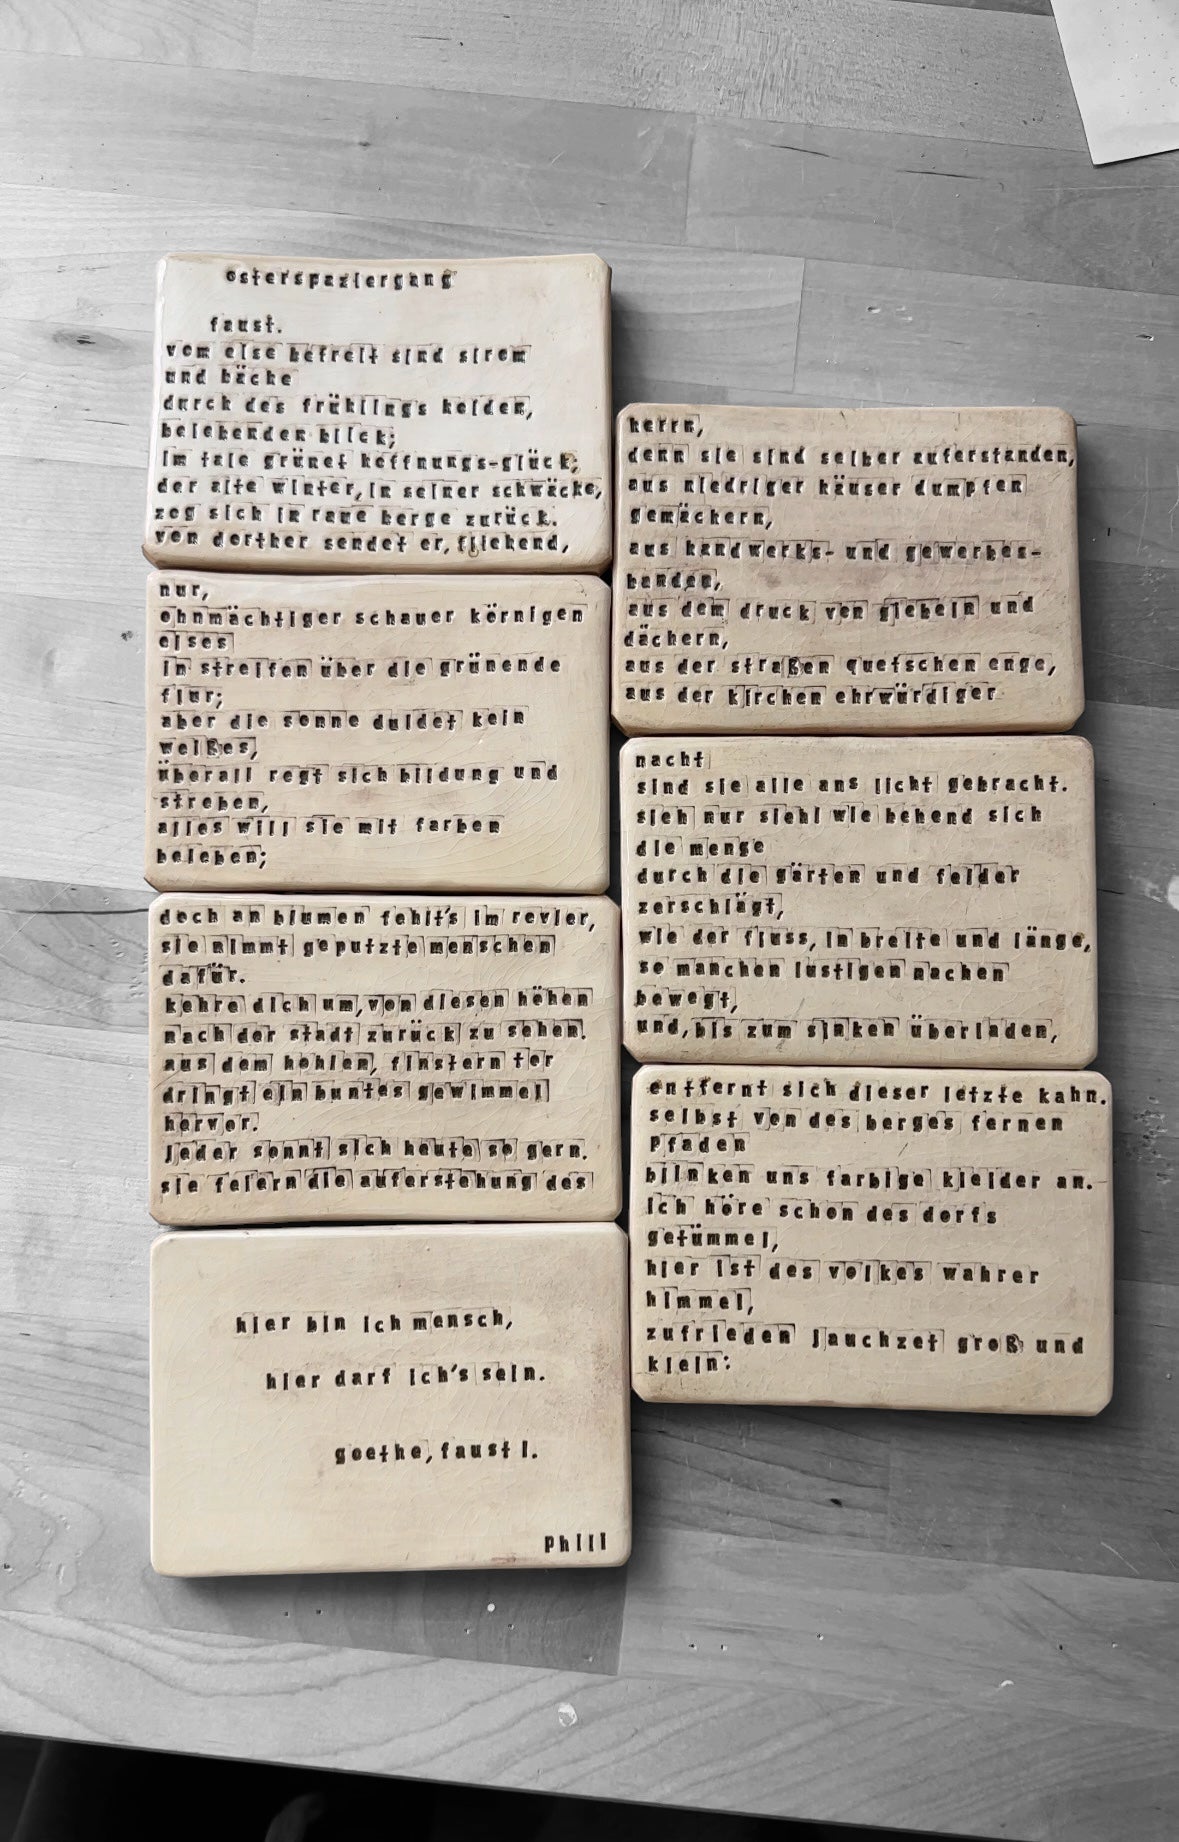 osterspaziergang
faust.
vom eise befreit sind strom
und bäche
durch des frühlings holden,
belebenden blick;
im tale grünet hoffnungs-glück;
der alte winter, in seiner schwäche,
zog sich in raue berge zurück.
von dorther sendet er, fliehend,
nur,
ohnmächtiger schauer körnigen
eises
in streifen über die grünende
flur;
aber die sonne duldet kein
weißes,
überall regt sich bildung und
streben,
alles will sie mit farben
beleben;
doch an blumen fehlt's im revier,
sie nimmt geputzte menschen
dafür.
kehre dich um, von diesen höhen
nach der stadt zurück zu sehen.
aus dem hohlen, finstern tor
dringt ein buntes gewimmel
hervor.
jeder sonnt sich heute so gern.
sie feiern die auferstehung des
herrn,
denn sie sind selber auferstanden,
aus niedriger häuser dumpfen
gemächern,
aus handwerks- und gewerbes-
banden,
aus dem druck von giebeln und
dächern,
aus der straßen quetschen enge,
aus der kirchen ehrwürdiger
nacht
sind sie alle ans licht gebracht.
sieh nur sieh! wie behend sich
die menge
durch die gärten und felder
zerschlägt,
wie der fluss, in breite und länge,
so manchen lustigen nachen
bewegt,
und, bis zum sinken überladen,
entfernt sich dieser letzte kahn.
selbst von des berges fernen
pfaden
blinken uns farbige kleider an.
ich höre schon des dorfs
getümmel,
hier ist des volkes wahrer
himmel,
zufrieden jauchzet groß und
klein:
hier bin ich mensch,
hier darf ich's sein.
goethe, faust I.
Phili